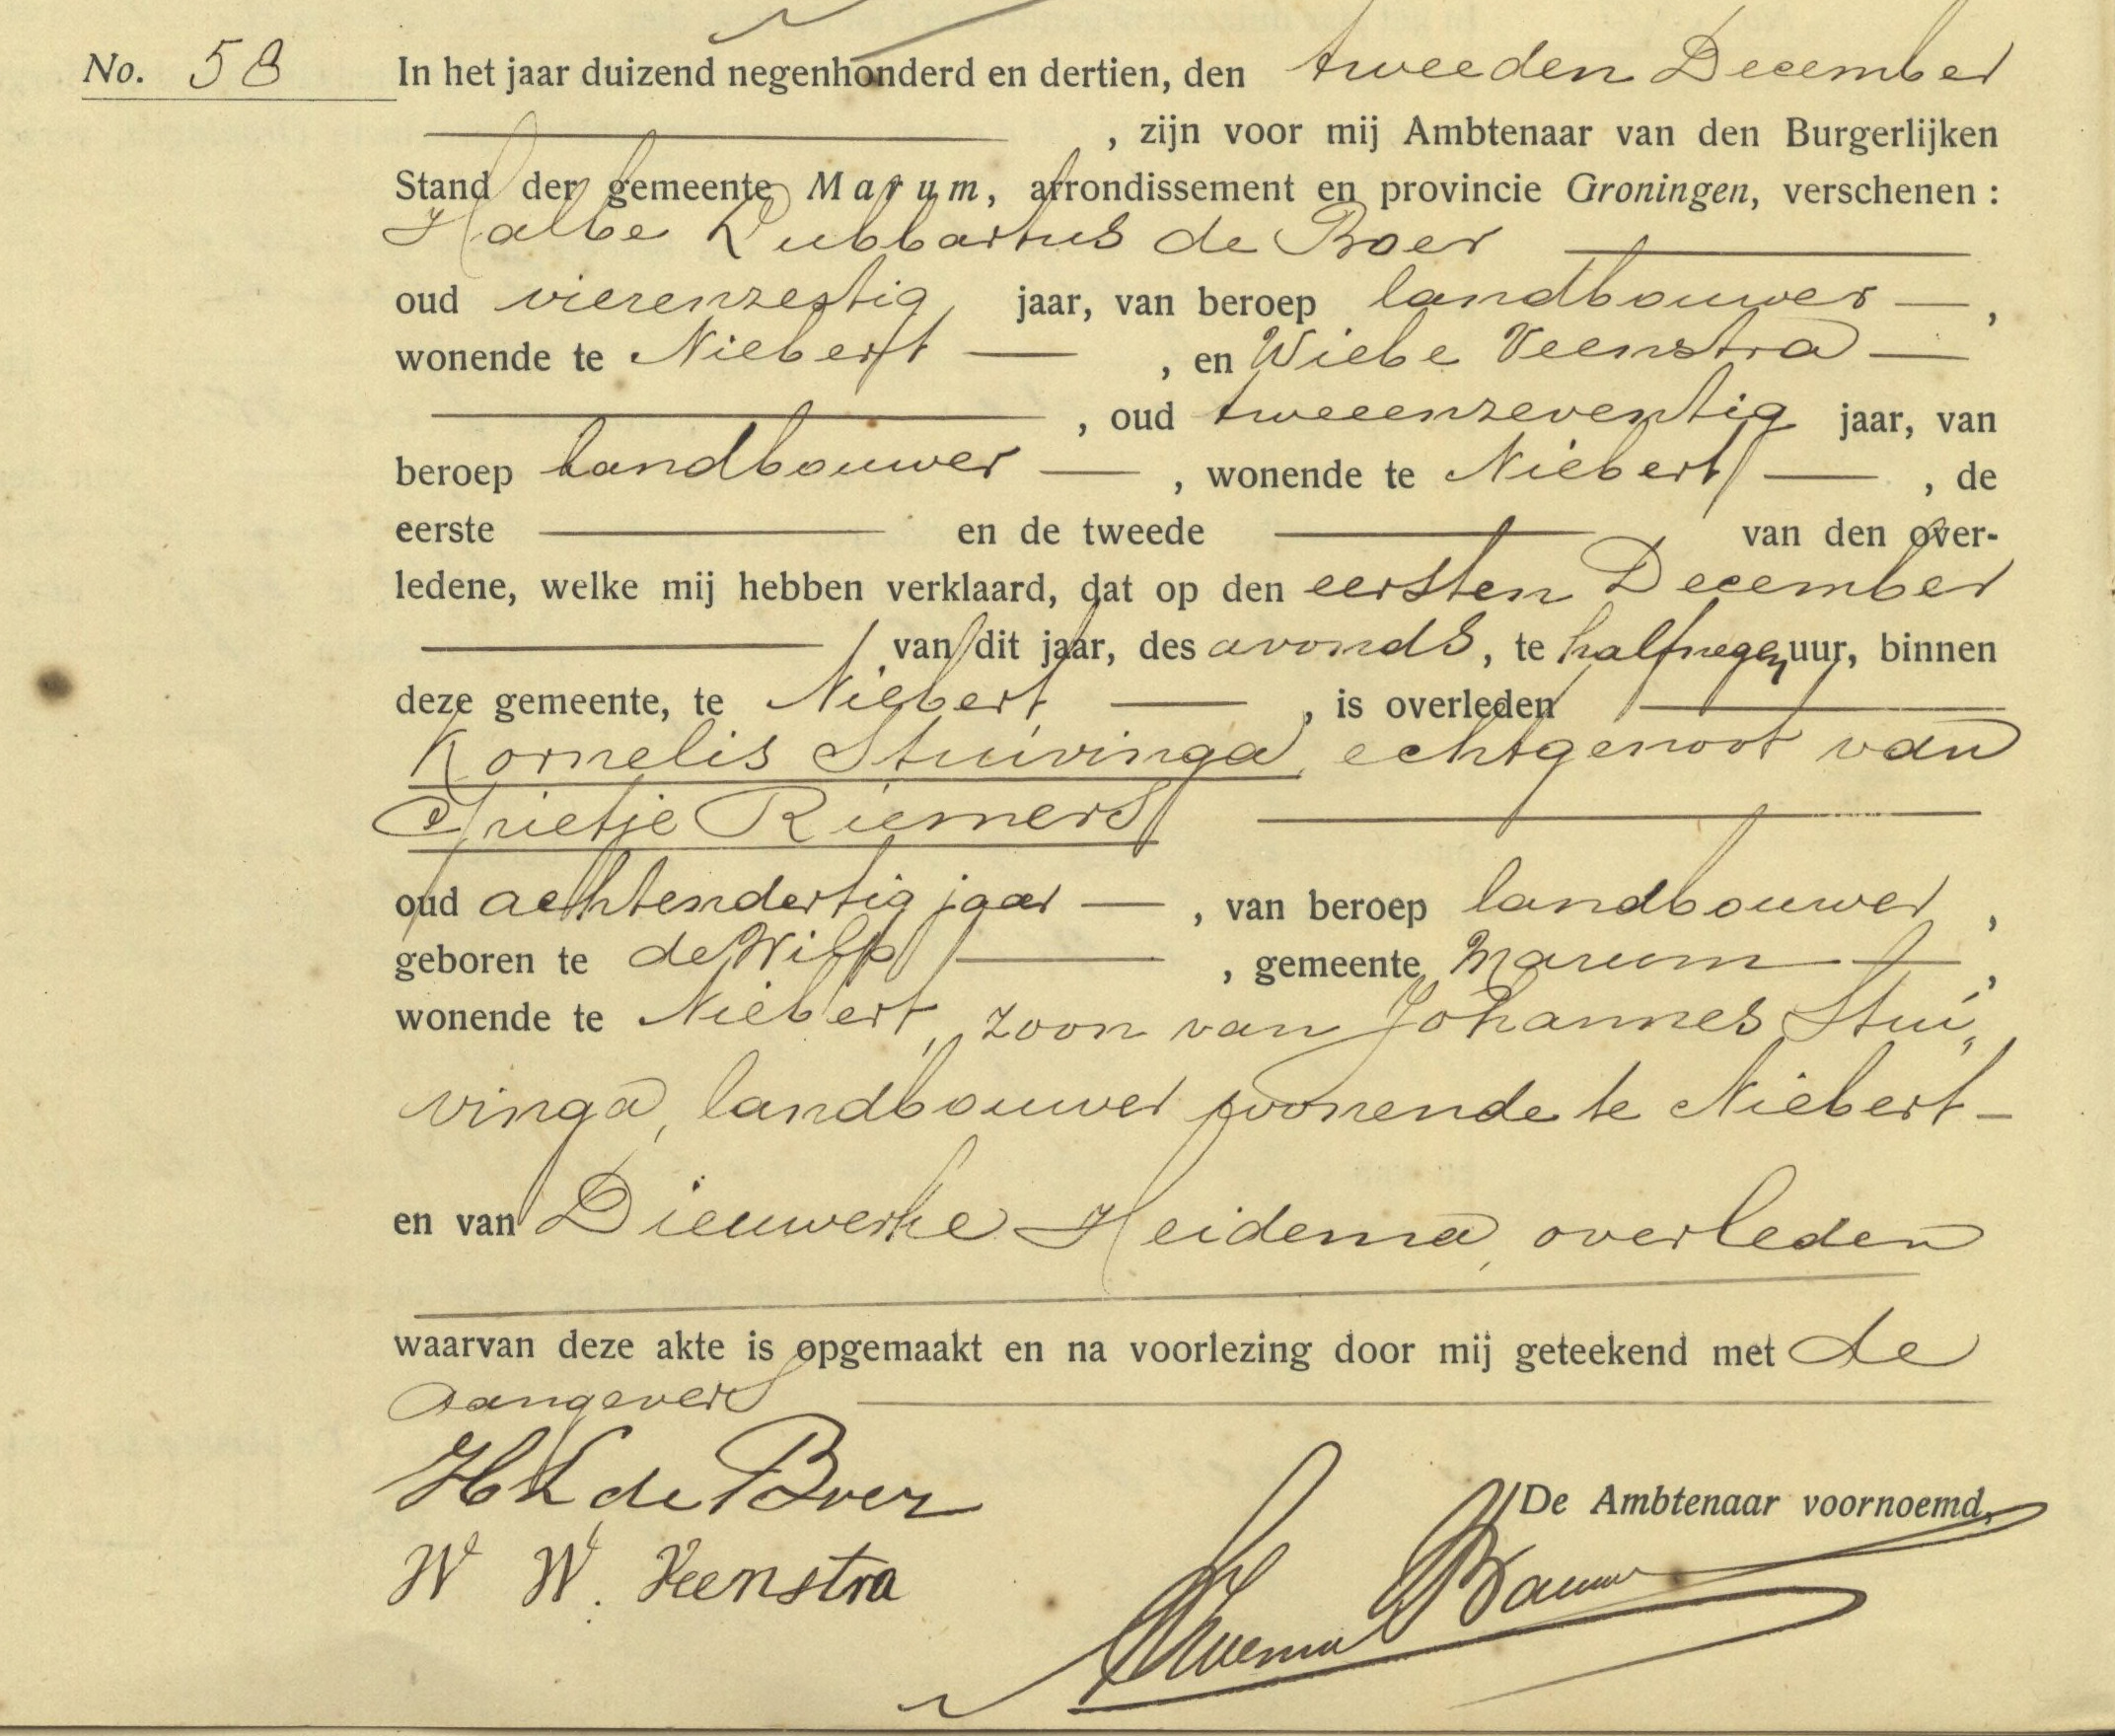 No. 58 In het jaar duizend negenhonderd en dertien, den tweeden December
, zijn voor mij Ambtenaar van den Burgerlijken
Stand der gemeente Marum, arrondissement en provincie Groningen, verschenen :
Halbe Lubbartus de Boer
oud vierenzestig jaar, van beroep landbouwer ,
wonende te Niebert , en Wiebe Veenstra
, oud tweeenzeventig jaar, van
beroep landbouwer , wonende te Niebert , de
eerste en de tweede van den over-
ledene, welke mij hebben verklaard, dat op den eersten December
, van dit jaar, des avonds, te halfnegen uur, binnen
deze gemeente, te Niebert , is overleden
Kornelis Stuivinga, echtgenoot van
Grietje Riemers
oud achtendertig jaar , van beroep landbouwer ,
geboren te de Wilp , gemeente Marum ,
wonende te Niebert, zoon van Johannes Stui„
vinga, landbouwer wonende te Niebert -
en van Dieuwerke Heidema, overleden
waarvan deze akte is opgemaakt en na voorlezing door mij geteekend met de
aangevers
H L de Boer
De Ambtenaar voornoemd,
W W. Veenstra